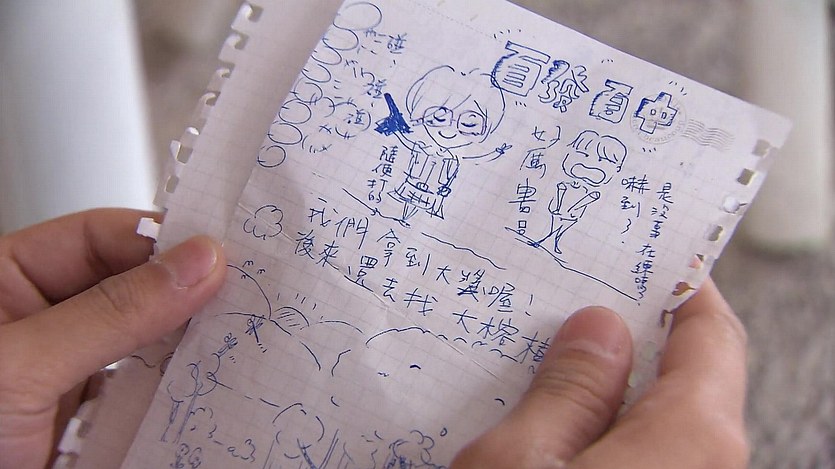 百發百中
碰
碰
碰
隨便打的
好厲害
是沒事在練嗎?
嚇到了.
我們拿到大獎喔!
後來還去找大榕